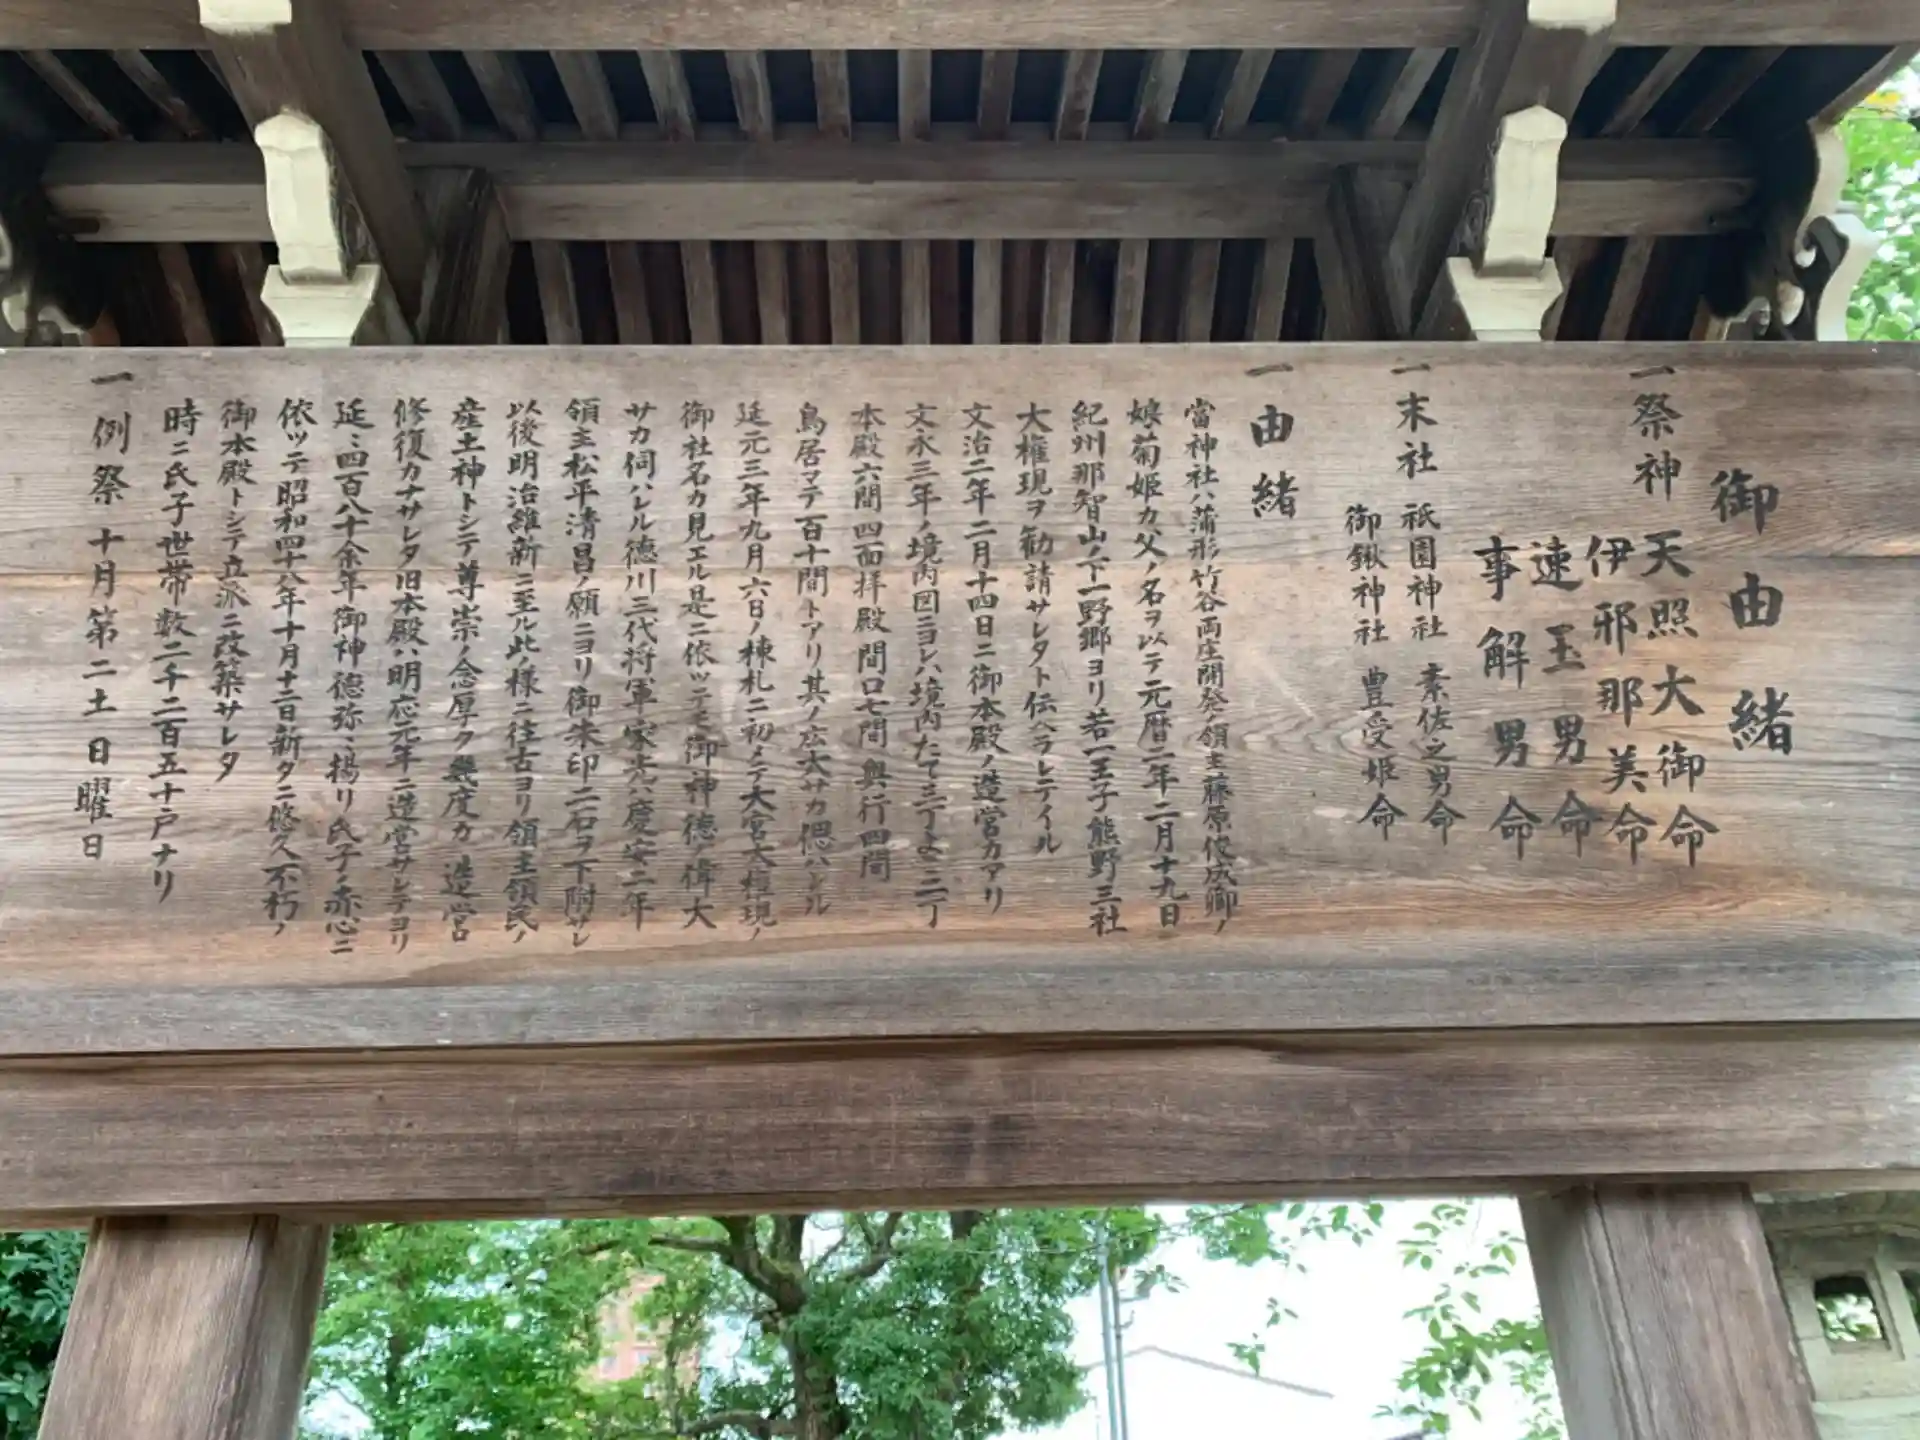 御由緒
一祭神 天照大御命
伊邪那美命
速玉男命
事解男命
一末社 祇園神社 素佐之男命
御鍬神社 豊受姫命
一由緒
當神社ハ蒲形竹谷両庄開発ノ領主藤原俊成卿ノ
娘菊姫カ父ノ名ヲ以テ元暦二年二月十九日
紀州那智山ノ下一野郷ヨリ若一王子熊野三社
大権現ヲ勧請サレタト伝ヘラレテイル
文治二年二月十四日ニ御本殿ノ造営カアリ
文永三年ノ境内図ニヨレハ境内たて三丁よこ二丁
本殿六間四面拝殿間口七間奥行四間
鳥居マテ百十間トアリ其ノ広大サカ偲ハレル
延元三年九月六日ノ棟札ニ初メテ大宮大権現ノ
御社名カ見エル是ニ依ツテモ御神徳ノ偉大
サカ伺ハレル徳川三代将軍家光ハ慶安二年
領主松平清昌ノ願ニヨリ御朱印二石ヲ下附サレ
以後明治維新ニ至ル此ノ様ニ往古ヨリ領主領民ノ
産土神トシテ尊崇ノ念厚ク幾度カ造営
修復カナサレタ旧本殿ハ明応元年ニ造営サレテヨリ
延々四百八十余年御神徳弥々揚リ氏子ノ赤心ニ
依ツテ昭和四十八年十月十二日新タニ悠久不朽ノ
御本殿トシテ立派ニ改築サレタ
時ニ氏子世帯数二千二百五十戸ナリ
一例祭 十月第二土日曜日